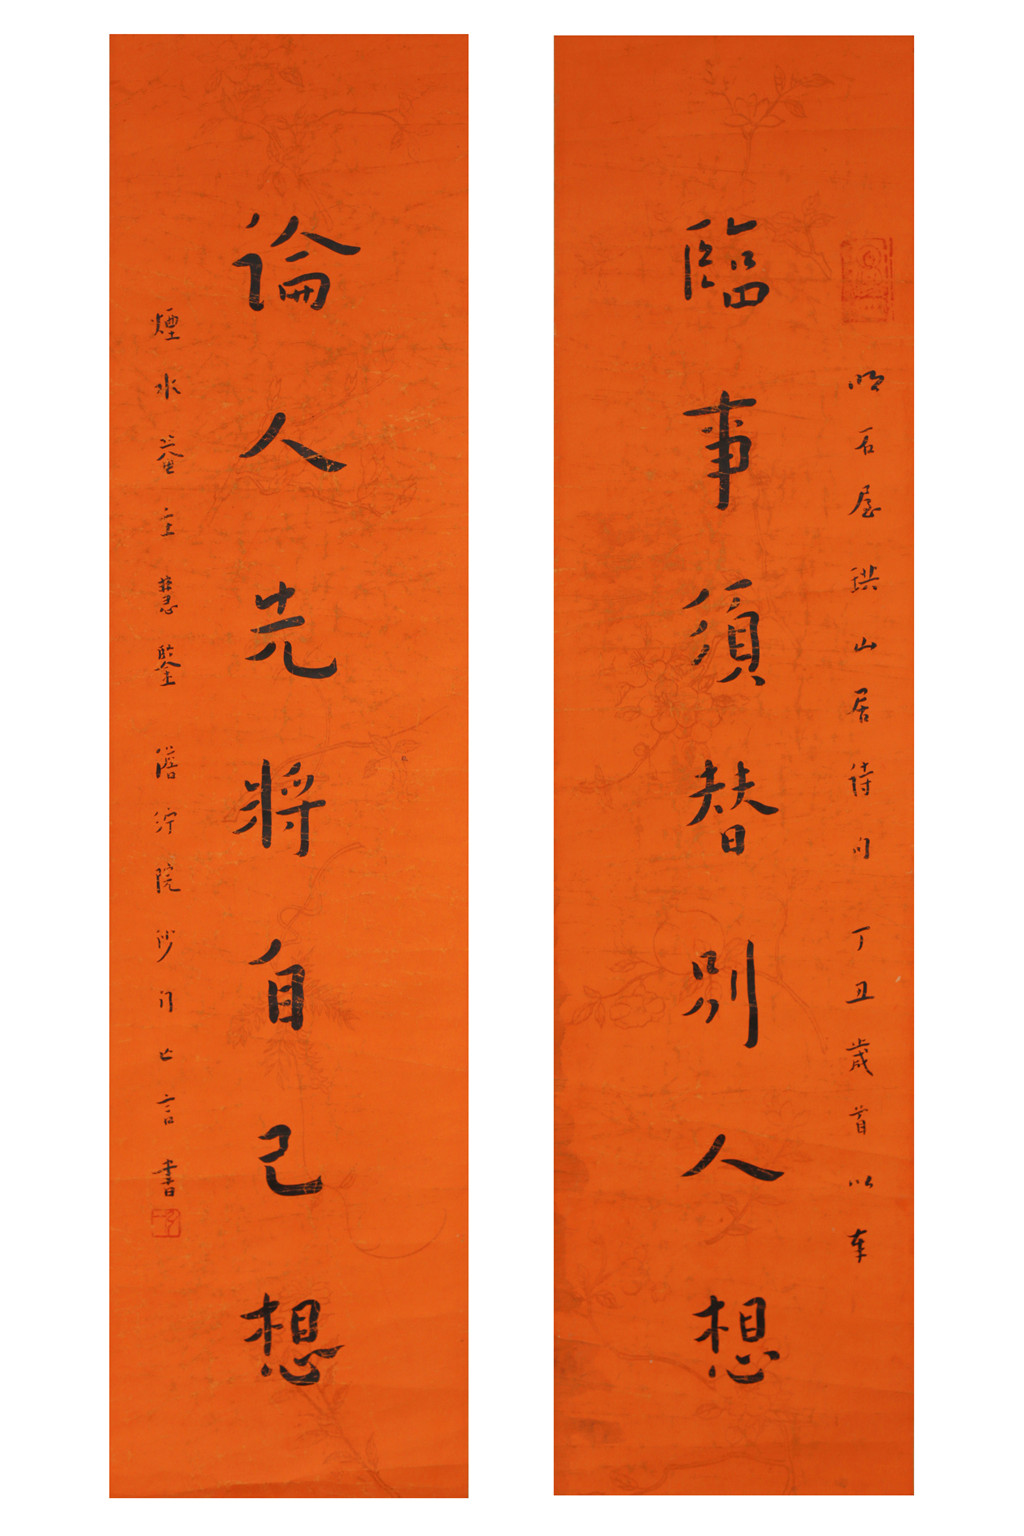 明石屋珙山居詩句丁丑歲首以奉
臨事須替別人想
論人先將自己想
煙水菴主慧鑒澹泞院沙门亡言書